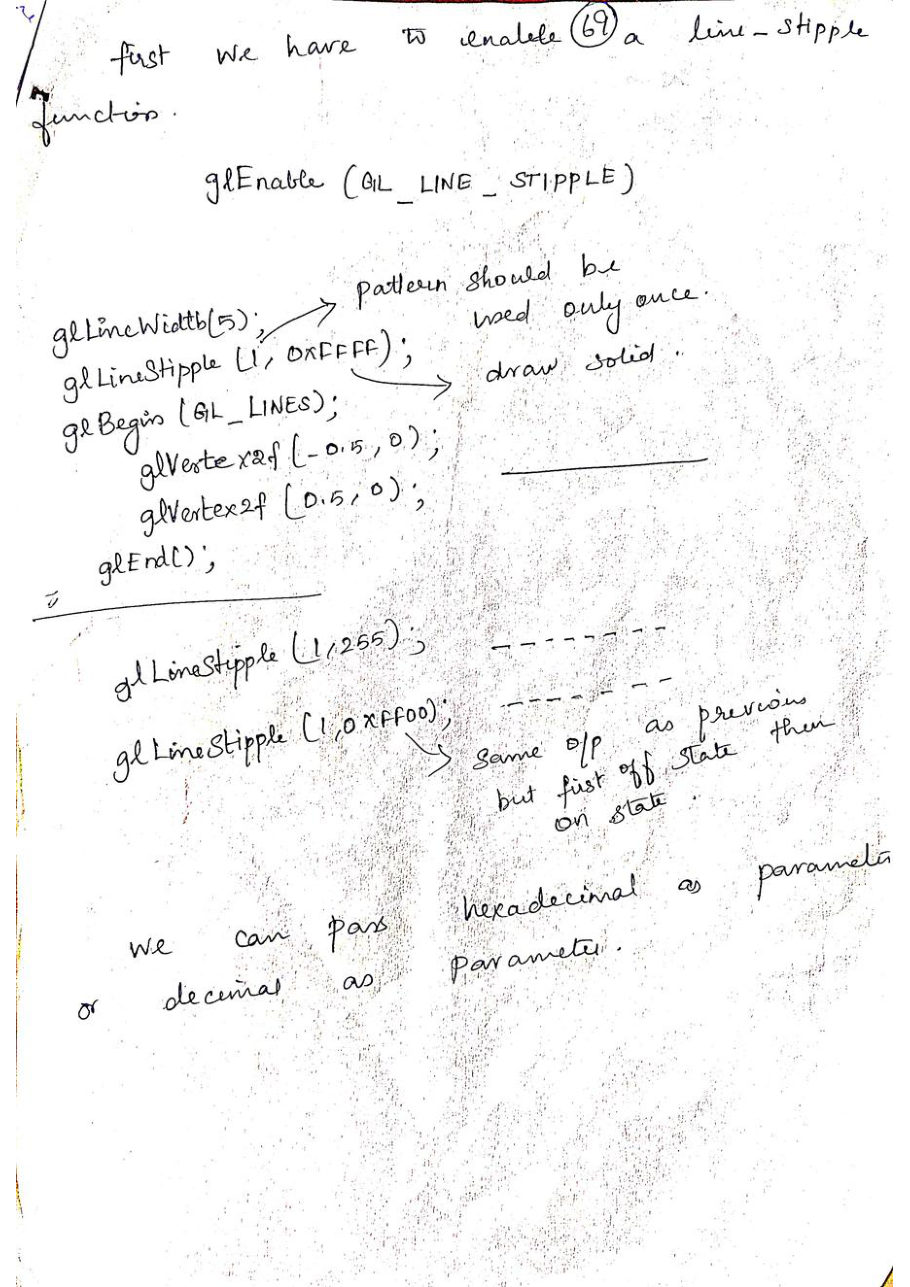 first we have to enable 69 a line-stipple
function.
glEnable (GL_LINE_STIPPLE)
glLineWidth(5);
pattern should be
used only once.
glLineStipple (1, 0xFFFF);
draw solid.
glBegin (GL_LINES);
glVertex2f (-0.5, 0);
glVertex2f (0.5, 0);
glEnd();
glLineStipple (1,255);
glLineStipple (1,0xFF00);
same o/p as previous
but first off state then
on state.
we can pass hexadecimal as parameter
or decimal as parameter.